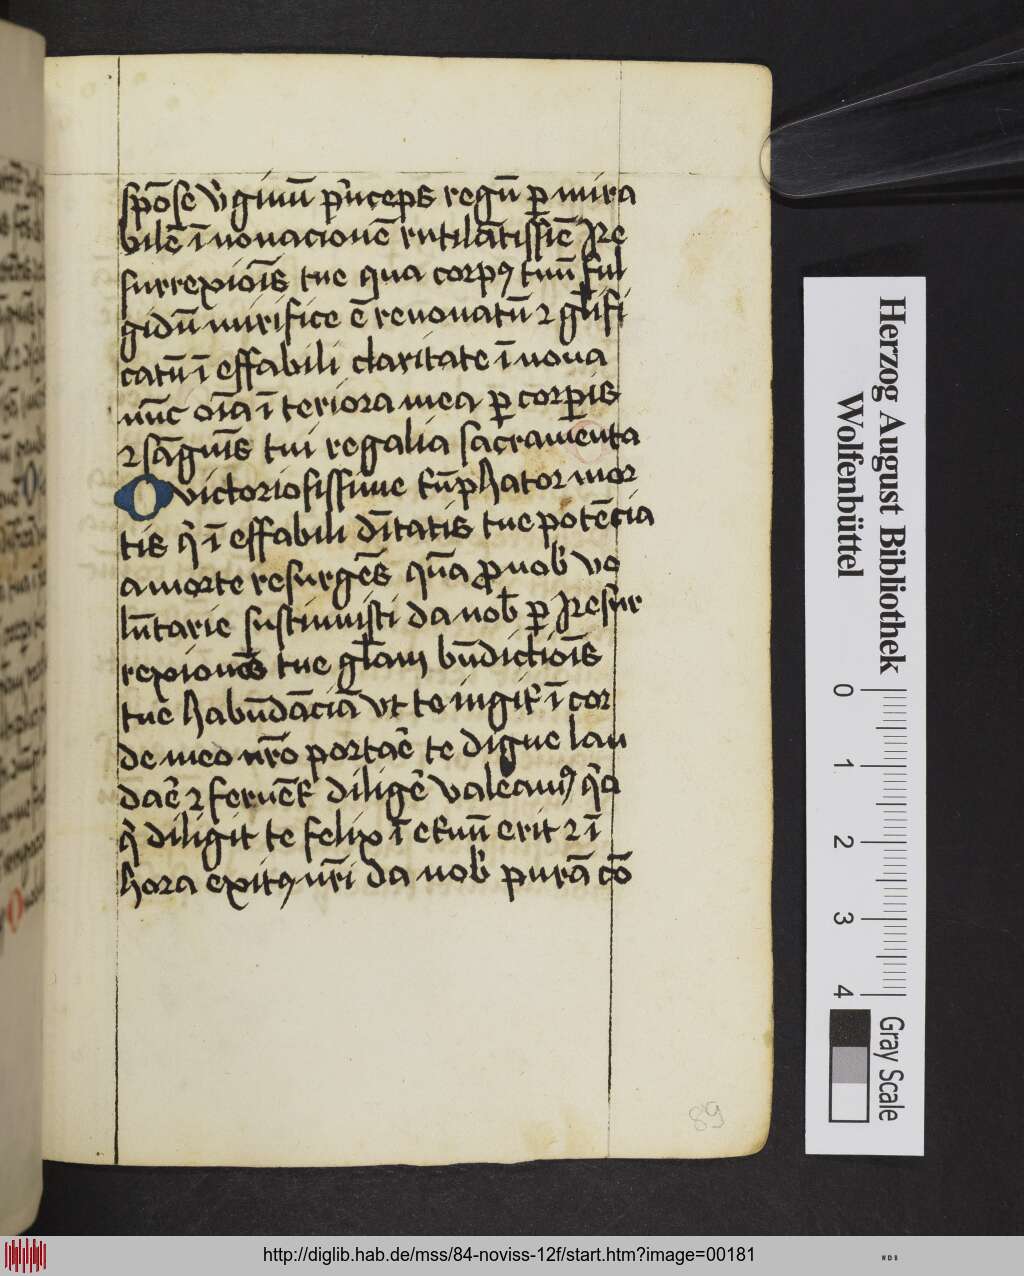 spōse v̾ginū p̾nceps regū ꝑ mira
bilē ī nouacionē rutilātissīē Re
surrexiōīs tue qua corpꝯ tuū ful
gidū mirifice ē renouatū ⁊ gl̄ifi
catū ī effabili claritate ī noua
nūc oīa ī teriora mea ꝑ corꝑis
⁊ sāguīs tui regalia sacramenta
O victoriosissime t̾ūphator mor
tis q̾ ī effabili dītatis tue potēcia
a morte resurgēs quā ꝓ nob̾ vo
lūtarie sustinuisti da nob̾ ꝑ Resur
rexiones tue gl̄am bn̄dictiōīs
tue habūdāciā vt te iugit̾ ī cor
de meo nr̄o portae̾ te digne lau
dae̾ ⁊ feruēt̾ dilige̾ valeamꝯ q̾a
q̾ diligit te felix ī et̾nū erit ⁊ ī
hora exitꝯ nr̄i da nob̾ purā cō
89
Herzog August Bibliothek
Wolfenbüttel
0 1 2 3 4
Gray Scale
http://diglib.hab.de/mss/84-noviss-12f/start.htm?image=00181